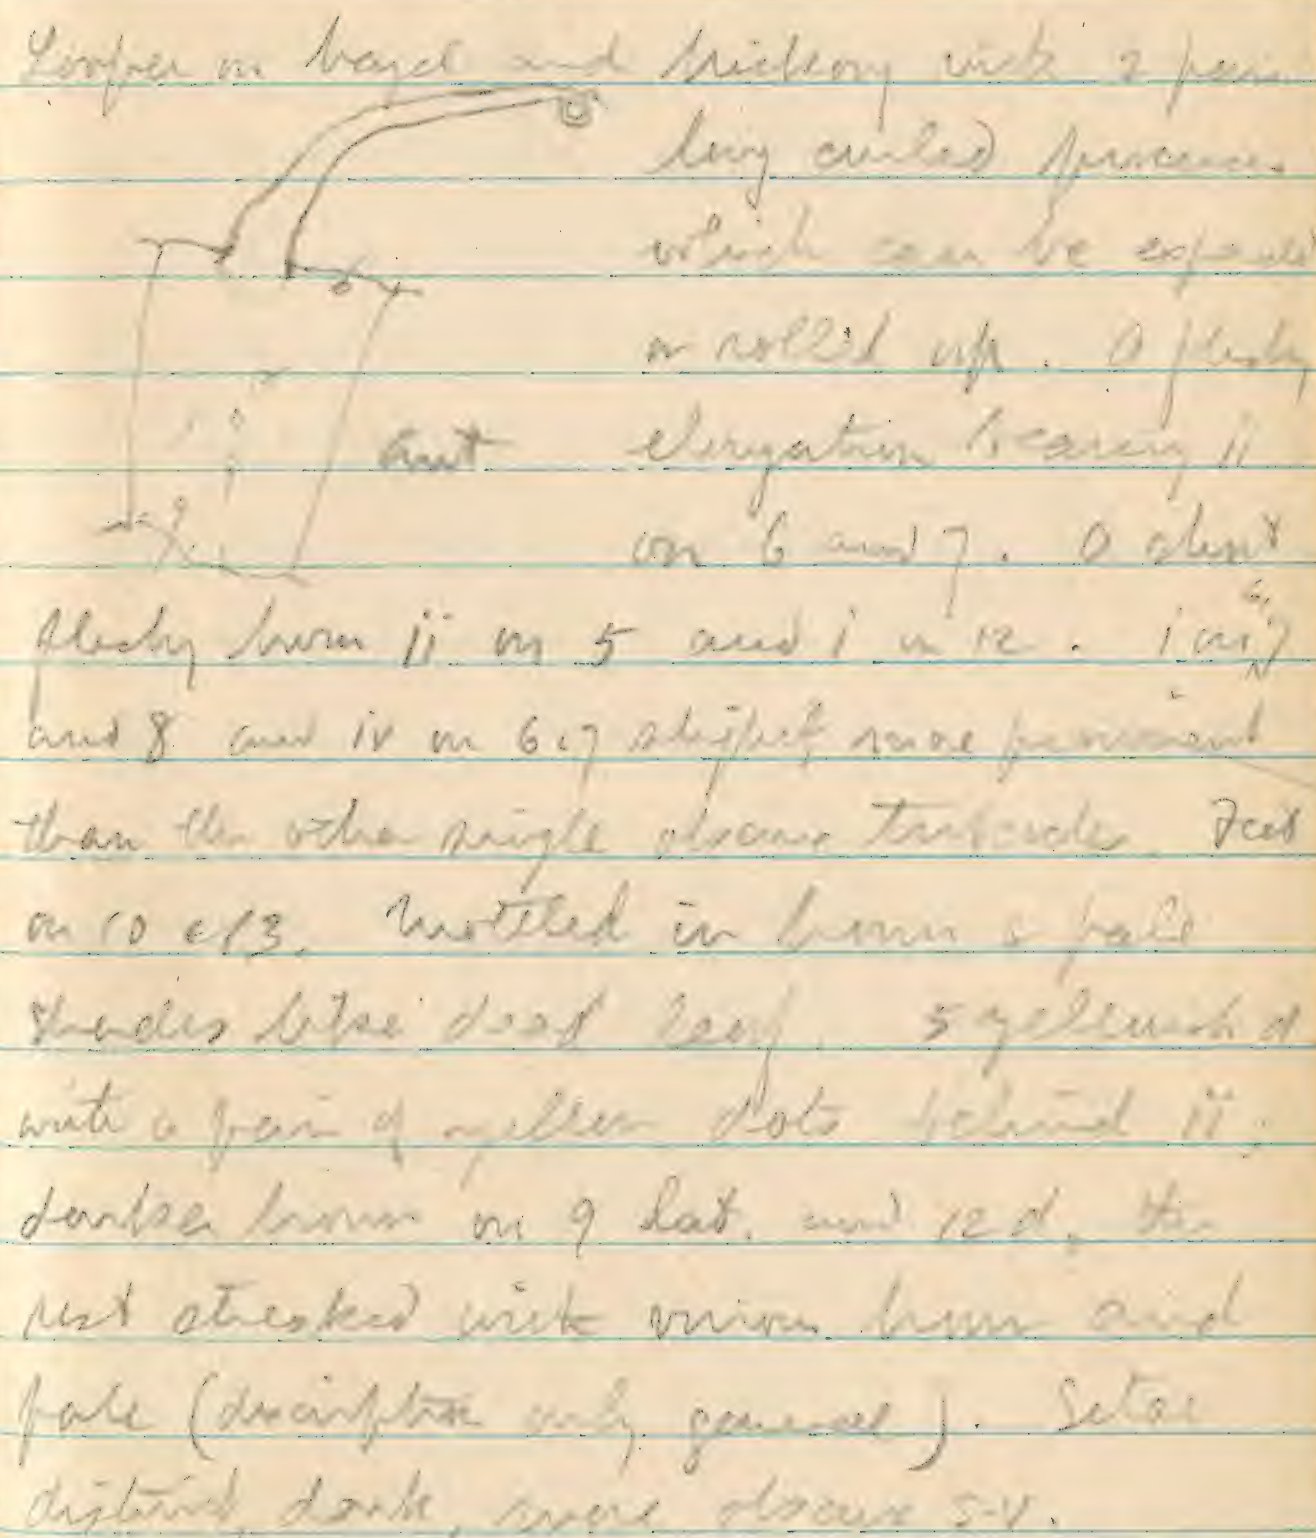 Looper on hazel and hickory with 2 pair
long curled processes
which can be expand
or rolled up. A fleshy
Ant elongation bearing ii
on 6 and 7. A short
fleshy horn ii on 5 and i on 12. i on 7
and 8 and iv on 6, 7 slightly more prominent
than the other single obscure tubercles. Feet
on 10 & 13. Mottled in brown & pale
shades like dead leaf. 5 yellowish d
with a pair of yellow dots behind ii,
darker brown on 9 lat. and 12 d, the
rest streaked with various brown and
pale (description only general). Setae
distinct, dark, obscure 5-V.